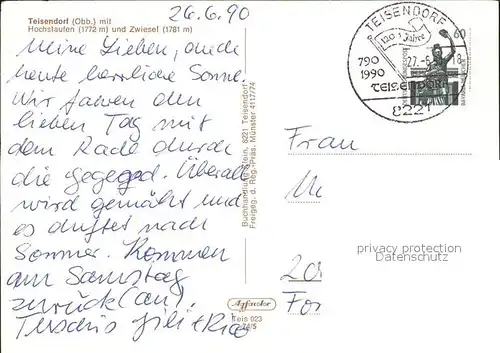 26.6.90
Teisendorf (Obb.) mit
Hochstaufen (1772 m) und Zwiesel (1781 m)
Meine Lieben, auch
heute herrliche Sonne.
Wir fahren den
lieben Tag mit
dem Rade durch
die Gegend. Überall
wird gemäht und
es duftet nach
Sommer. Kommen
am Samstag
zurück (an).
Tschüs
Buchhandlung Stein, 8221 Teisendorf
Freigeg. d. Reg.-Präs. Münster 4117/74
Teis 023
TEISENDORF
1200 Jahre
790
1990
27.-6.
18
TEISENDORF
8221
60
Frau
privacy protection
Datenschutz